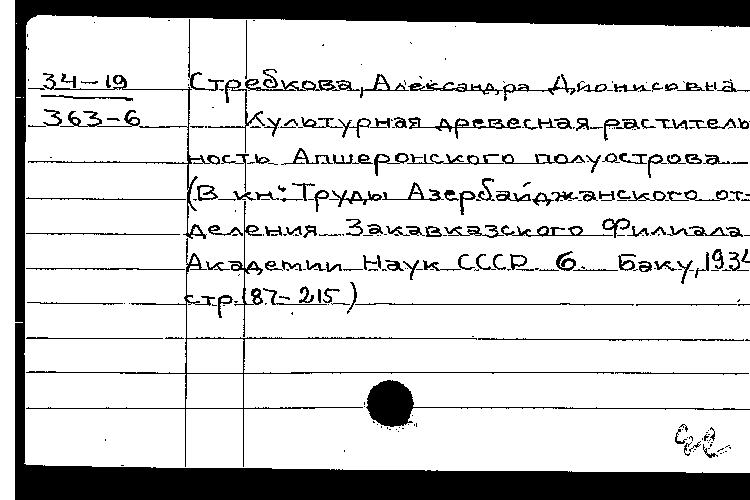 34-19
363-6
Стребкова, Александра Дионисовна
Культурная древесная раститель
ность Апшеронского полуострова
(В кн: Труды Азербайджанского от-
деления Закавказского Филиала
Академии Наук СССР. 6. Баку, 1934
стр. (87-215)